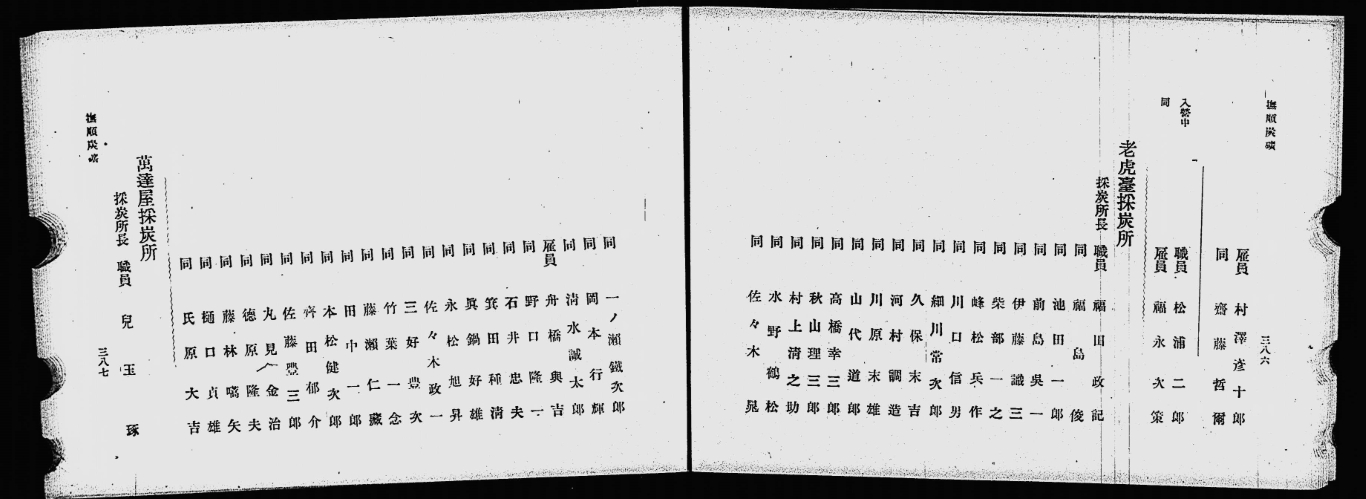 撫順炭礦
三八六
雇員 村澤彥十郎
同 齋藤哲爾
入營中 職員 松浦二郎
同 雇員 福永次策
老虎臺採炭所
採炭所長 職員 福田政記
同 福島俊
同 池田一郎
同 前島吳一
同 伊藤識三
同 柴部一之
同 峰松兵作
同 川口信男
同 細川常次郎
同 久保末吉
同 河村調造
同 川原末雄
同 山代道郎
同 高橋幸三郎
同 秋山理三郎
同 村上清之助
同 水野鶴松
同 佐々木晃
同 一ノ瀨鐵次郎
同 岡本行輝
同 淸水誠太郎
雇員 舟橋與吉
同 野口隆一
同 石井忠夫
同 箕田種清
同 眞鍋好雄
同 永松旭昇
同 佐々木政一
同 三好豊次
同 竹葉一念
同 藤瀨仁藏
同 田中一郎
同 本松健次郎
同 齊田郁介
同 佐藤豊三郎
同 丸見金治
同 德原隆夫
同 藤林矢
同 樋口貞雄
同 氏原大吉
萬達屋採炭所
採炭所長 職員 兒玉琢
撫順炭礦
三八七